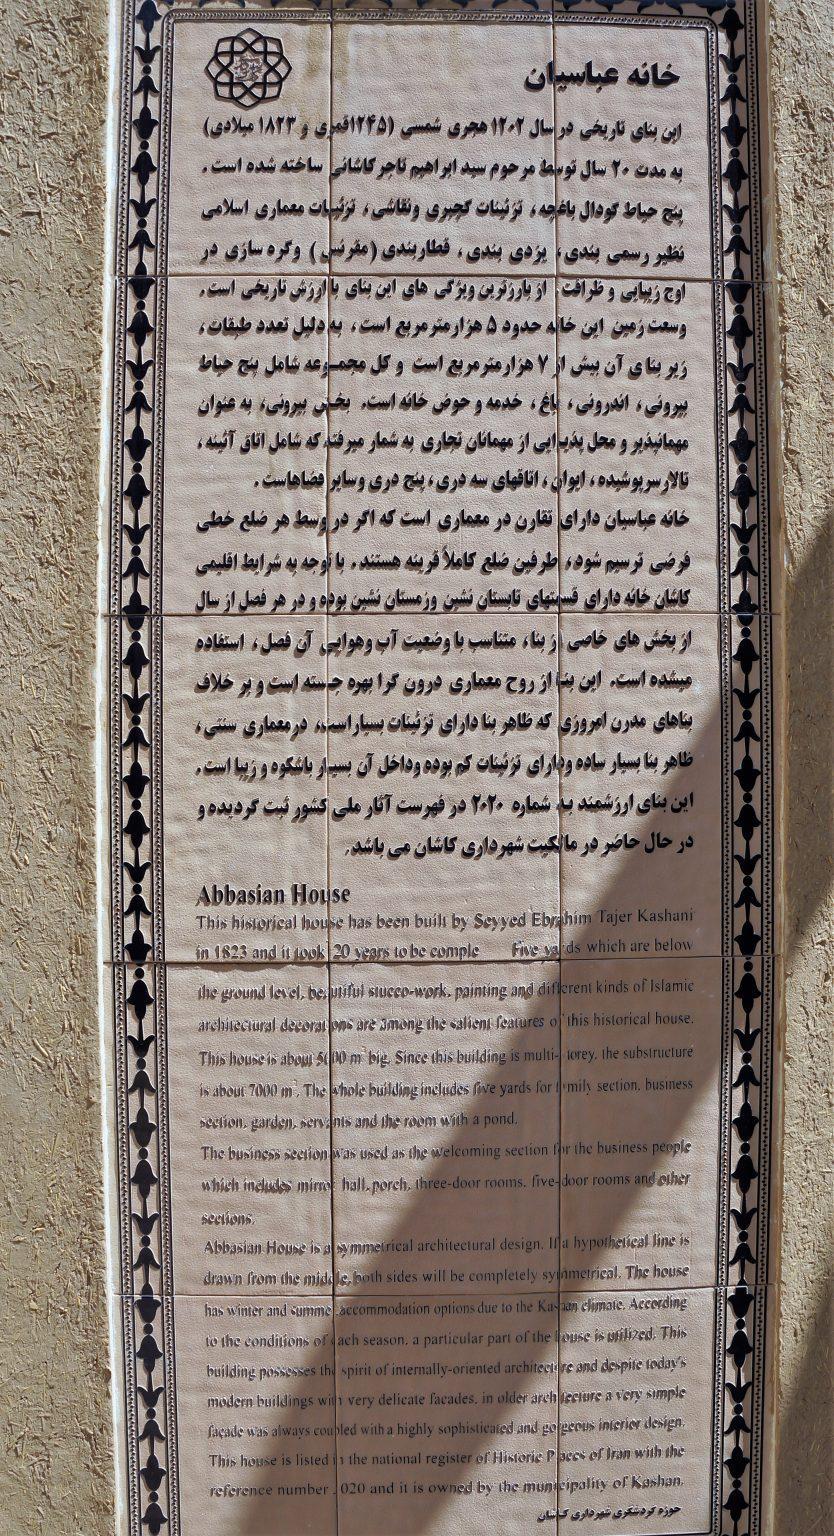 خانه عباسیان
این بنای تاریخی در سال ۱۲۰۲ هجری شمسی (۱۲۴۵قمری و ۱۸۲۳ میلادی)
به مدت ۲۰ سال توسط مرحوم سید ابراهیم تاجر کاشانی ساخته شده است.
پنج حیاط گودال باغچه، تزئینات گچبری ونقاشی، تزئینات معماری اسلامی
نظیر رسمی بندی، یزدی بندی، قطاربندی (مقرنس) وگره سازی در
اوج زیبایی و ظرافت از بارزترین ویژگی های این بنای با ارزش تاریخی است.
وسعت زمین این خانه حدود ۵ هزارمترمربع است، به دلیل تعدد طبقات،
زیر بنای آن بیش از ۷ هزارمترمربع است و کل مجموعه شامل پنج حیاط
بیرونی، اندرونی، باغ، خدمه و حوض خانه است. بخش بیرونی، به عنوان
مهمانپذیر و محل پذیرایی از مهمانان تجاری به شمار میرفته که شامل اتاق آئینه،
تالارسرپوشیده، ایوان، اتاقهای سه دری، پنج دری وسایر فضاهاست.
خانه عباسیان دارای تقارن در معماری است که اگر در وسط هر ضلع خطی
فرضی ترسیم شود، طرفین ضلع کاملاً قرینه هستند. با توجه به شرایط اقلیمی
کاشان خانه دارای قسمتهای تابستان نشین وزمستان نشین بوده و در هر فصل از سال
از بخش های خاصی از بنا، متناسب با وضعیت آب وهوایی آن فصل، استفاده
میشده است. این بنا از روح معماری درون گرا بهره جسته است و بر خلاف
بناهای مدرن امروزی که ظاهر بنا دارای تزئینات بسیاراست، درمعماری سنتی،
ظاهر بنا بسیار ساده ودارای تزئینات کم بوده وداخل آن بسیار باشکوه و زیبا است.
این بنای ارزشمند به شماره ۲۰۲۰ در فهرست آثار ملی کشور ثبت گردیده و
در حال حاضر در مالکیت شهرداری کاشان می باشد.
Abbasian House
This historical house has been built by Seyyed Ebrahim Tajer Kashani
in 1823 and it took 20 years to be comple Five yards which are below
the ground level, beautiful stucco-work, painting and different kinds of Islamic
architectural decorations are among the salient features of this historical house.
This house is about 5000 m² big. Since this building is multi-storey, the substructure
is about 7000 m². The whole building includes five yards for family section, business
section, garden, servants and the room with a pond.
The business section was used as the welcoming section for the business people
which includes mirror hall, porch, three-door rooms, five-door rooms and other
sections.
Abbasian House is a symmetrical architectural design. If a hypothetical line is
drawn from the middle, both sides will be completely symmetrical. The house
has winter and summer accommodation options due to the Kashan climate. According
to the conditions of each season, a particular part of the house is utilized. This
building possesses the spirit of internally-oriented architecture and despite today's
modern buildings with very delicate facades, in older architecture a very simple
façade was always coupled with a highly sophisticated and gorgeous interior design.
This house is listed in the national register of Historic Places of Iran with the
reference number 2020 and it is owned by the municipality of Kashan.
حوزه گردشگری شهرداری کاشان